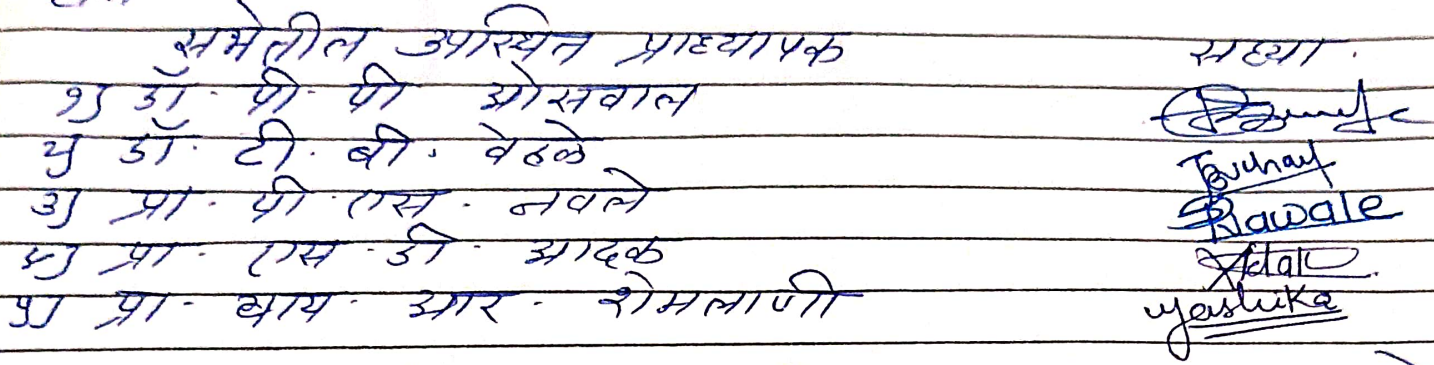 सभेतील उपस्थित प्राध्यापक सह्या.
१) डॉ. पी. पी ओसवाल
२) डॉ. टी. बी. वेहळे
३) प्रा. पी. एस. नवले Nawale
४) प्रा. एस. डी. आदक Adak
५) प्रा. वाय. आर. रोमलाणी Yashika